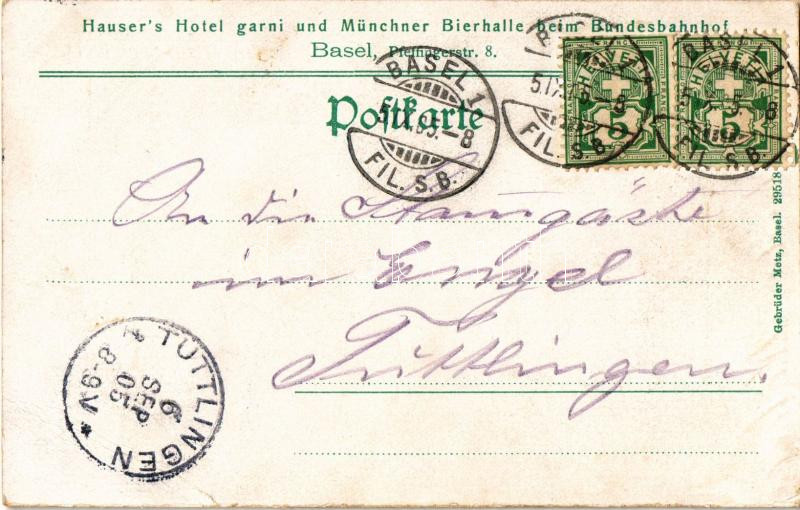 Hauser's Hotel garni und Münchner Bierhalle beim Bundesbahnhof
Basel, Pfeffingerstr. 8.
Postkarte
BASEL 1
5.IX.05.–8
FIL. S. B.
HELVETIA
5
HELVETIA
5
BASEL 1
FIL. S. B.
An die Stammgäste
im Engel
Tuttlingen.
K. TUTTLINGEN *
6
SEP
05
8-9V
Gebrüder Metz, Basel. 29518